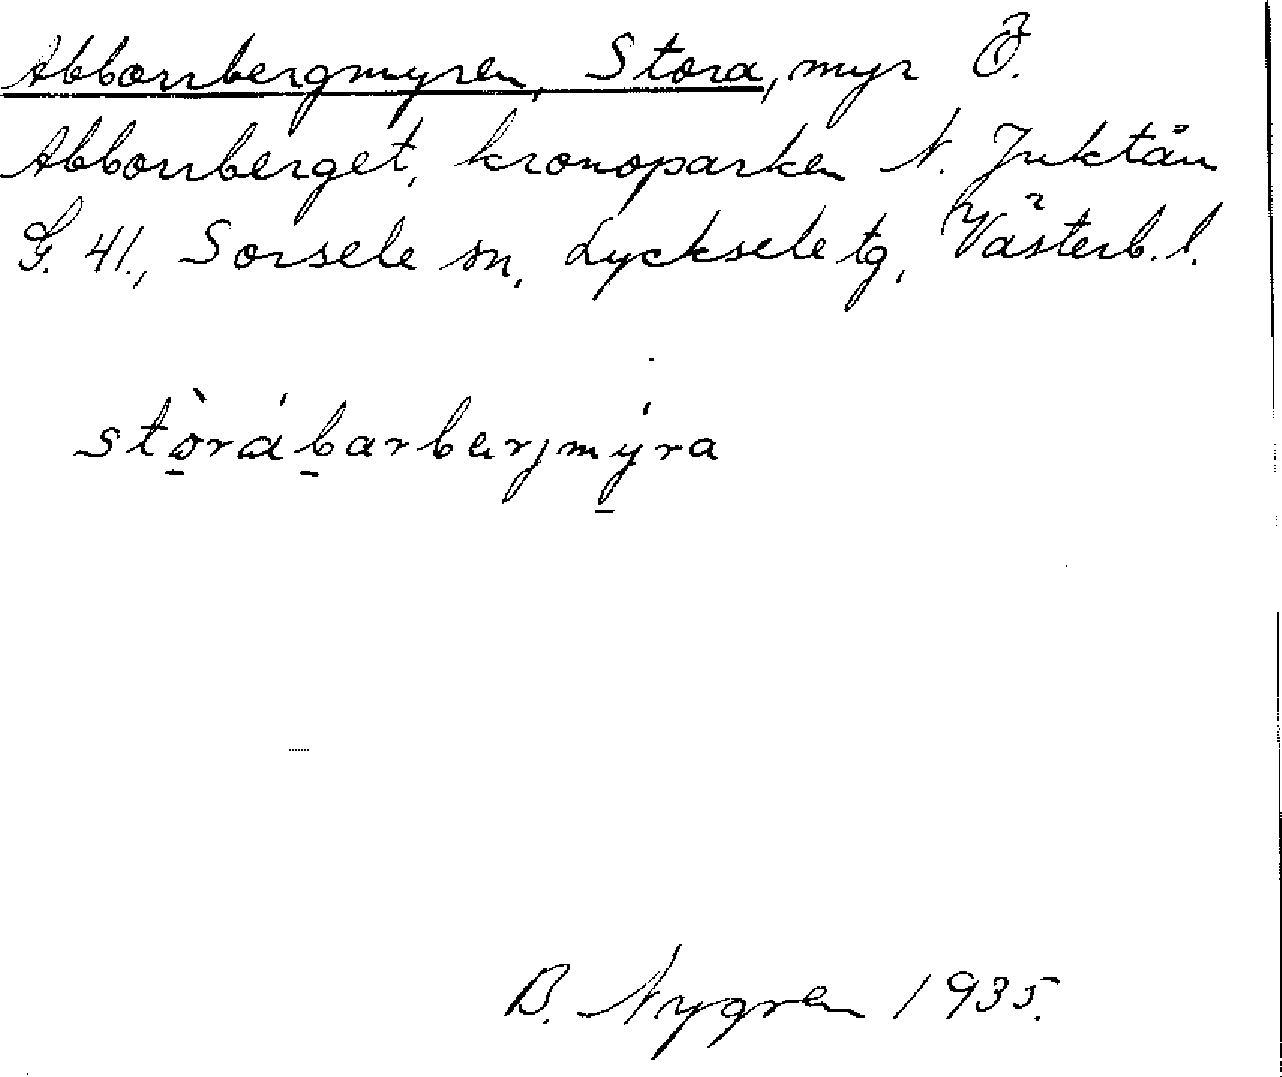 Abborrbergmyren, Stora, myr Ö.
Abborrberget, kronoparken N. Juktån
G. 41., Sorsele sn, Lycksele tg, Västerb. l.
stòrábarbærjmýra
B. Nygren 1935.